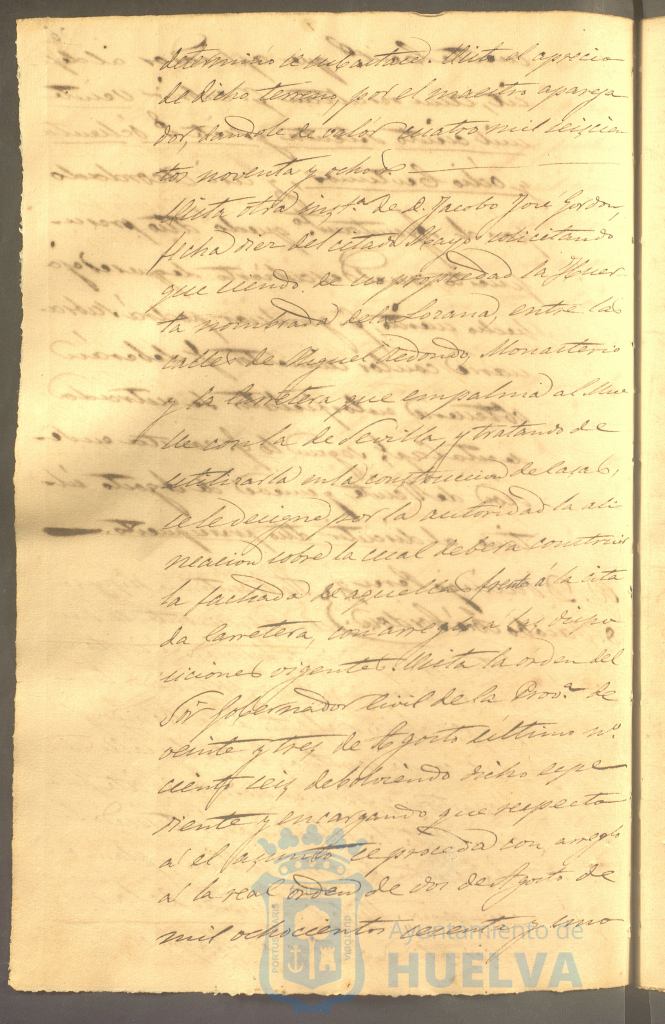 determinio de subastas. Visto el aprecio
de dicho terreno, por el maestro apareja
dor, dandole de valor cuatro mil seiscien
tos noventa y ocho
Vista otra inst.ª de D. Jacobo José Gordon,
fecha diez del citado Mayo solicitando
que siendo de su propiedad la Huer
ta nombrada de la Lozana, entre las
calles de Miguel Redondo, Monasterio
y la Carretera que empalma al Mue
lle con la de Sevilla, y tratando de
utilizarla en la construccion de casas,
se le designe por la autoridad la ali
neacion sobre la cual debera construir
la fachada de aquellas frente á la cita
da Carretera, con arreglo a las dispo
siciones vigentes. Vista la orden del
Sór Gobernador Civil de la Prov.ª de
veinte y tres de Agosto último nº.
ciento seis debolviendo dicho espe
diente y encargando que respecto
á el asunto se proceda con arreglo
á la real orden de dos de Agosto de
mil ochocientos sesenta y uno
Ayuntamiento de
HUELVA